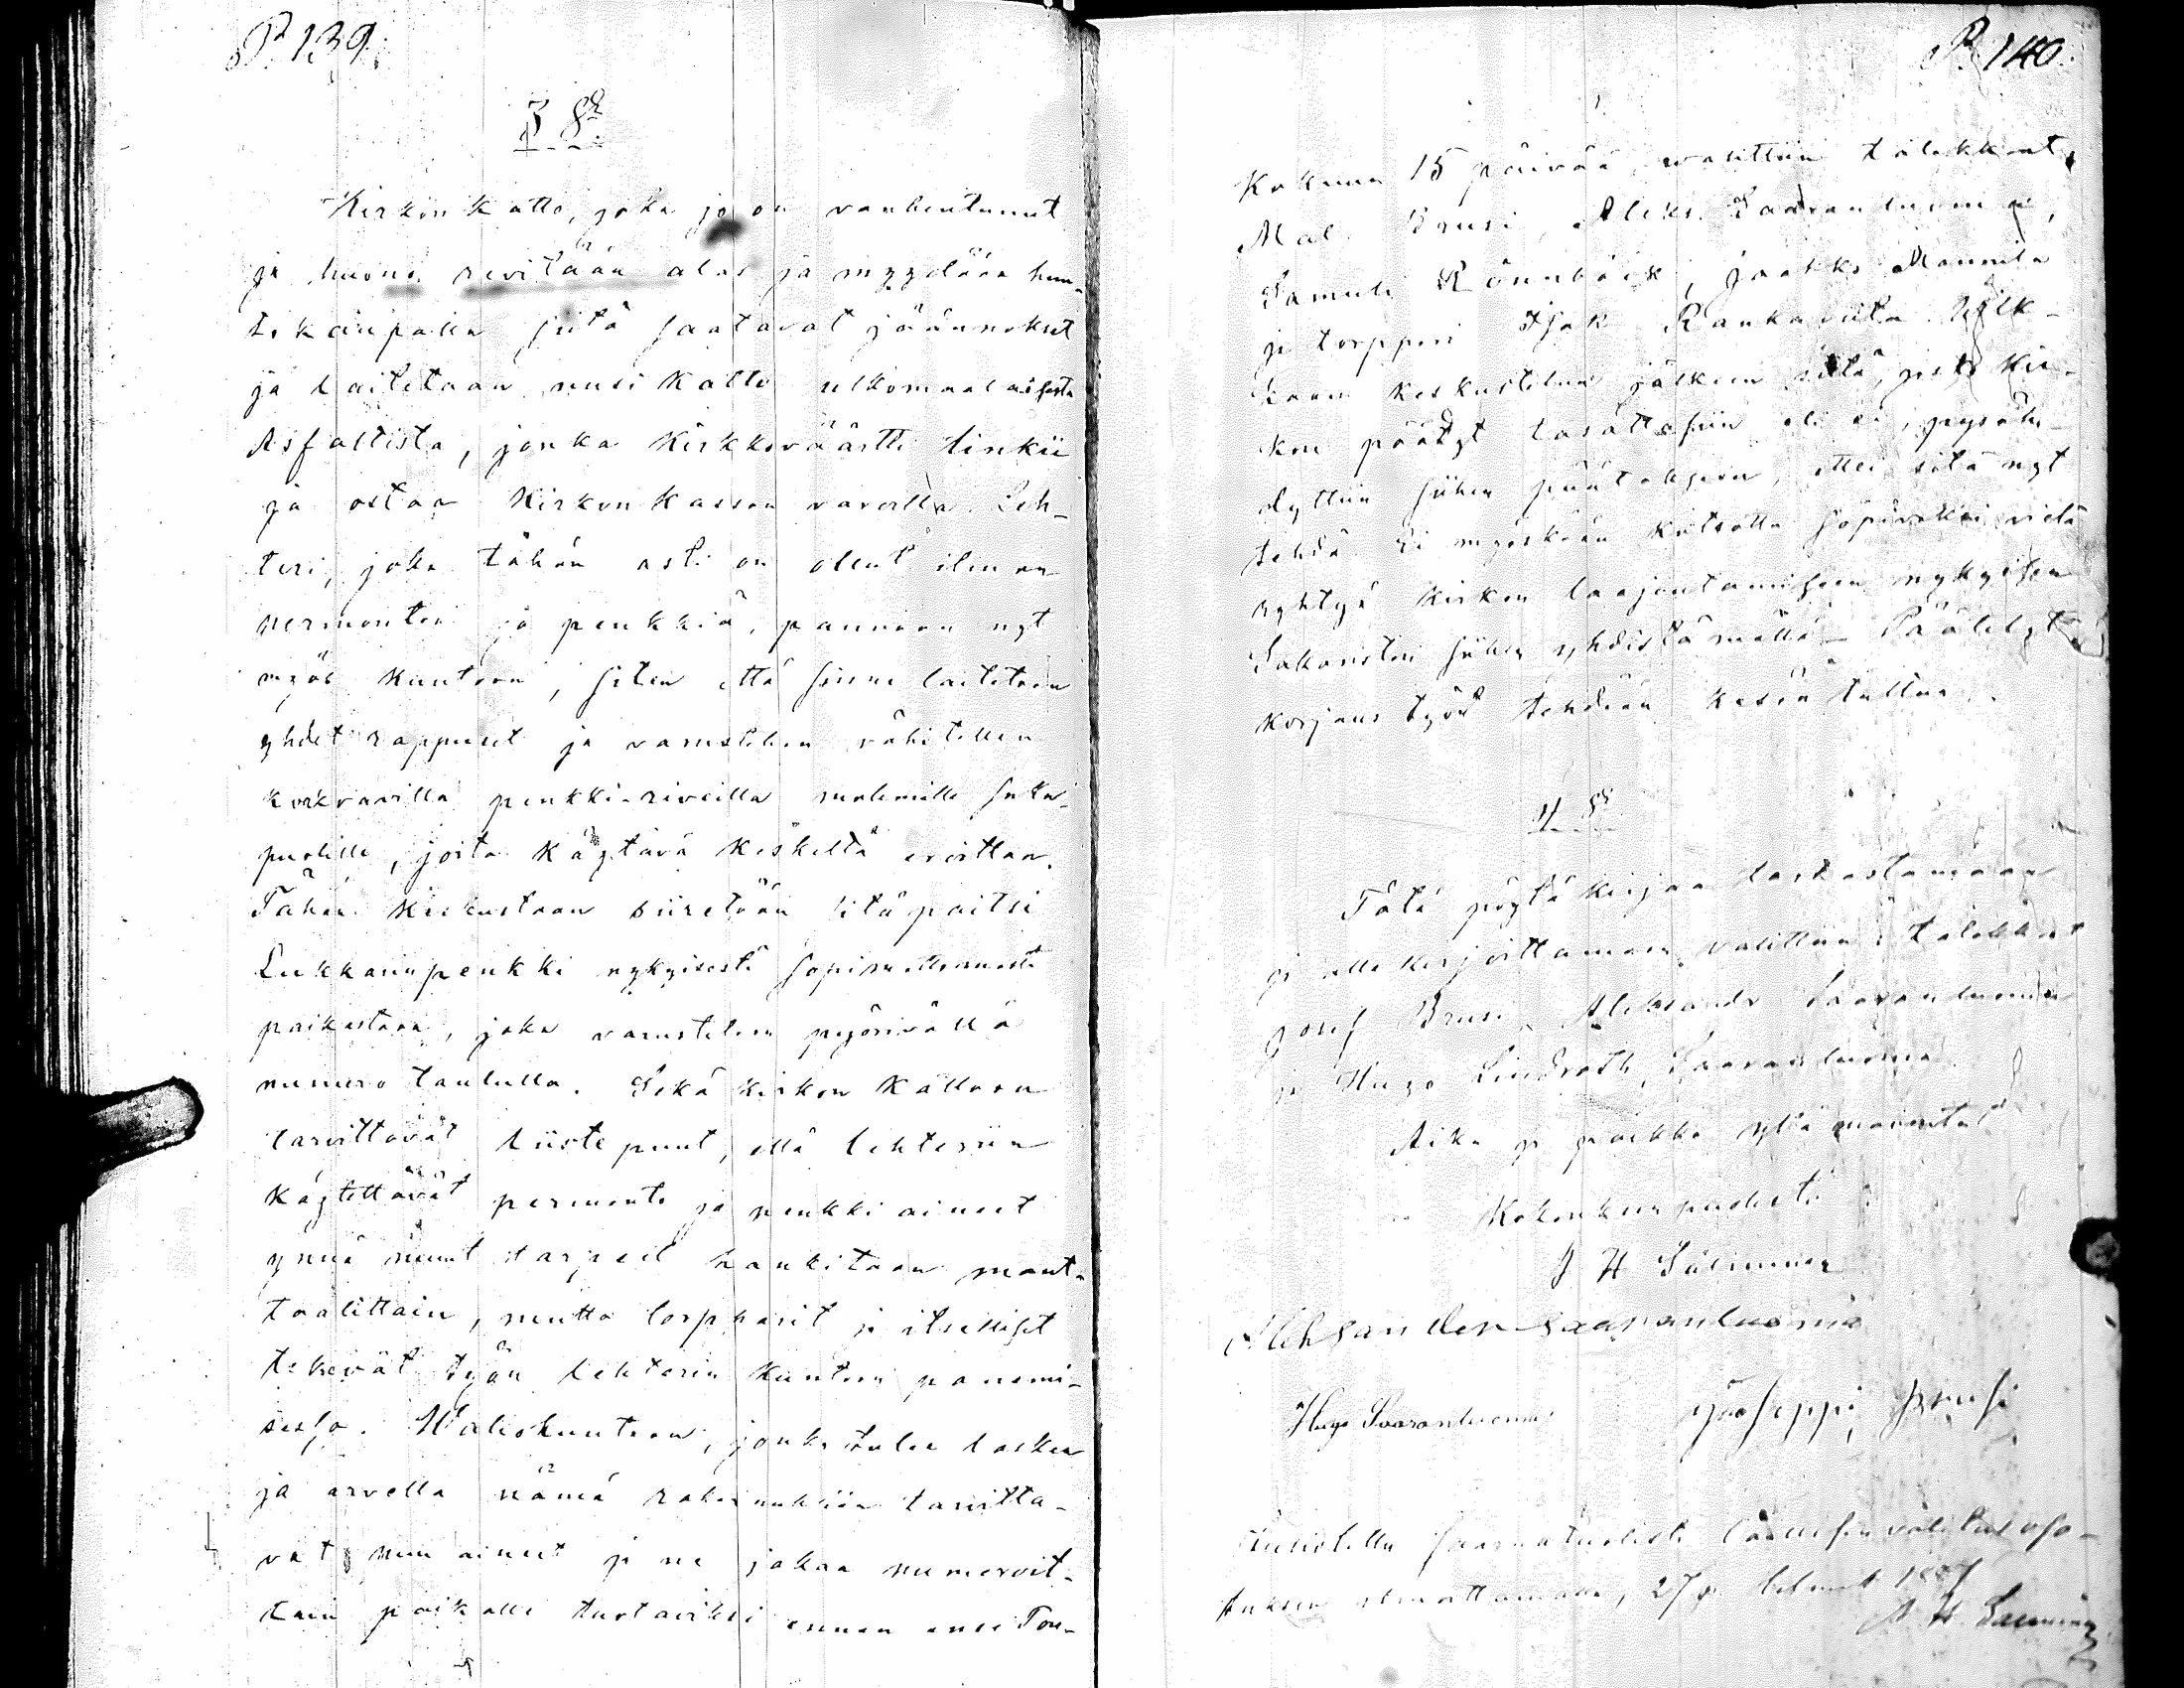 P. 139.
3 §
Kirkon katto, joka jo on vanhentunut
ja huono, revitään alas ja myydään huu-
tokaupalla siitä saatavat jäännökset
ja laitetaan uusi katto ulkomaalaisesta
Asfaltista, jonka Kirkkoväärtti tinkii
ja ostaa Kirkon kassan varoilla. Leh-
teri, joka tähän asti on ollut ilman
permontoa ja penkkiä, pannaan nyt
myös kuntoon, siten että sinne laitetaan
yhdet rappuset ja varustetaan vähitellen
korkeavilla penkki-riveillä molemille suku-
puolille, joita käytävä keskeltä eroittaa.
Tähän keskustaan siiretään sitäpaitsi
Lukkarinpenkki nykyisestä sopimattomasta
paikastaan, joka varustetaan pyörivällä
numero taululla. Sekä kirkon kattoon
tarvittavat liistepuut, että lehteriin
käytettävät permonto ja penkki aineet
ynnä muut tarpeet hankitaan mant-
taalittain, mutta torpparit ja itselliset
tekevät työn lehterin kuntoon panemi-
sessa. Waliokuntaan, jonka tulee laskea
ja arvella nämä rakennuksiin tarvitta-
vat puu aineet ja ne jakaa numeroit-
tain paikalle tuotaviksi ennen ensi Tou-
P. 140.
Kokuun 15 päivää, valittiin talokkaat,
Mat. Brusi, Aleks. Saaranluoma,
Samuli Rönnbäck, Jaakko Mannila
ja torppari Isak Rankaviita. Wilk-
kaan keskustelun jälkeen siitä, jos Kir-
kon päädyt tasattasiin eli ei, pysäh-
dyttiin siihen päätökseen, ettei sitä nyt
tehdä. Ei myöskään katsottu sopivaksi vielä
ryhtyä kirkon laajentamiseen nykyisen
Sakariston siihen yhdistämällä. Päätetyt
korjaus työt tehdään kesän tultua.
4 §
Tätä pöytäkirjaa tarkastamaan
ja alle kirjoittamaan valittiin talokkaat
Josef Brusi, Aleksander Saaranluoma
ja Hugo Lindroth, Saaranluoma.
Aika ja paikka yllä mainitut
Kokouksen puolesta
Aleksanden Saaranluoma
Hugo Saaranluoma Jooseppi Brusi
saarnatuolista laillisen valitus oso-
tuksen ilmoittamalla, 27 p. helmik. 1887